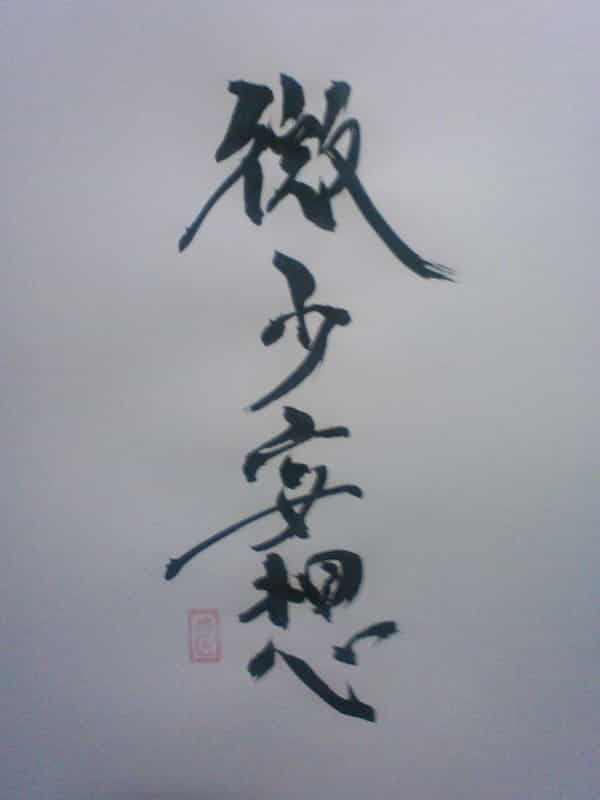 微少妄想